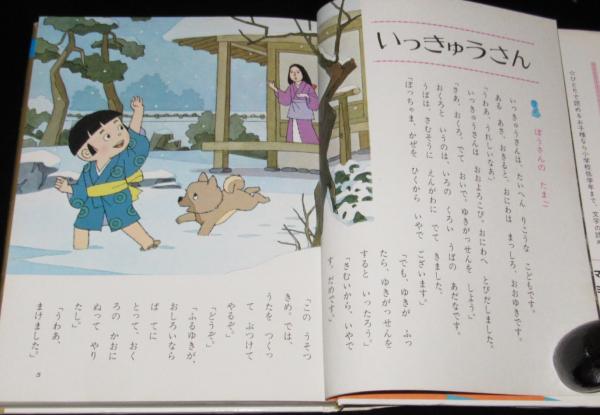 いっきゅうさん
ぼうさんの たまご
いっきゅうさんは、たいへん りこうな こどもです。
ある あさ、おきると、おにわは まっしろ、おおゆきです。
「うわあ、うれしいなあ」
いっきゅうさんは おおよろこび。おにわへ とびだしました。
「さあ、おくろ、でて おいで。ゆきがっせんを しよう。」
おくろと いうのは、いろの くろい うばの あだなです。
うばは、さむそうに えんがわに でて きました。
「ぼっちゃま、かぜを ひくから いやで
ございます。」
「でも、ゆきが ふっ
たら、ゆきがっせんを
すると いったろう。」
「さむいから、いやで
す。だめです。」
「この うそつ
きめ。では、
うたを つくっ
て ぶつけて
やるぞ。」
「どうぞ。」
「ふるゆきが、
おしろいなら
ば てに
とって、おく
ろの かおに
ぬって やり
たし。」
「うわあ、
まけました。」
5